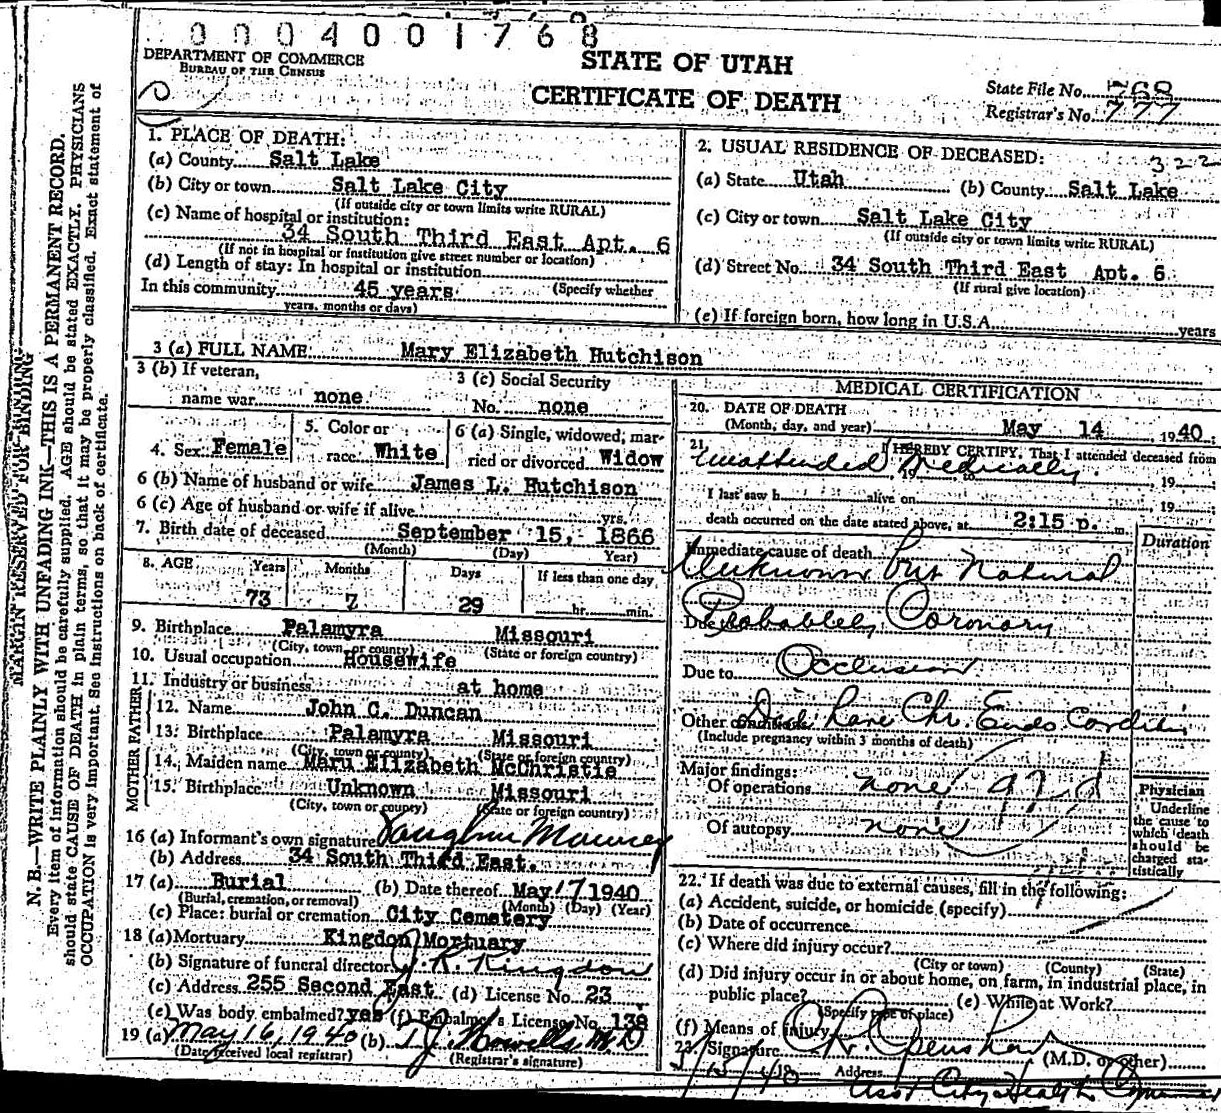 0004001768
DEPARTMENT OF COMMERCE
BUREAU OF THE CENSUS
STATE OF UTAH
CERTIFICATE OF DEATH
State File No. 768
Registrar's No. 777
MARGIN RESERVED FOR BINDING
N. B.—WRITE PLAINLY WITH UNFADING INK—THIS IS A PERMANENT RECORD.
Every item of information should be carefully supplied. AGE should be stated EXACTLY. PHYSICIANS
should state CAUSE OF DEATH in plain terms, so that it may be properly classified. Exact statement of
OCCUPATION is very important. See instructions on back of certificate.
1. PLACE OF DEATH:
(a) County Salt Lake
(b) City or town Salt Lake City
(If outside city or town limits write RURAL)
(c) Name of hospital or institution:
34 South Third East Apt. 6
(If not in hospital or institution give street number or location)
(d) Length of stay: In hospital or institution
In this community 45 years (Specify whether
years, months or days)
2. USUAL RESIDENCE OF DECEASED: 322
(a) State Utah (b) County Salt Lake
(c) City or town Salt Lake City
(If outside city or town limits write RURAL)
(d) Street No. 34 South Third East Apt. 6
(If rural give location)
(e) If foreign born, how long in U.S.A. years
3 (a) FULL NAME Mary Elizabeth Hutchison
3 (b) If veteran,
name war none
3 (c) Social Security
No. none
4. Sex Female
5. Color or
race White
6 (a) Single, widowed, mar-
ried or divorced Widow
6 (b) Name of husband or wife James L. Hutchison
6 (c) Age of husband or wife if alive yrs.
7. Birth date of deceased September 15, 1866
(Month) (Day) Year)
8. AGE Years Months Days If less than one day
73 7 29 hr. min.
9. Birthplace Palamyra Missouri
(City, town or county) (State or foreign country)
10. Usual occupation Housewife
11. Industry or business at home
FATHER
12. Name John C. Duncan
13. Birthplace Palamyra Missouri
(City, town or county) (State or foreign country)
MOTHER
14. Maiden name Maru Elizabeth McChristie
15. Birthplace Unknown Missouri
(City, town or county) (State or foreign country)
16 (a) Informant's own signature
(b) Address 34 South Third East.
17 (a) Burial (b) Date thereof May 17 1940
(Burial, cremation, or removal) (Month) (Day) (Year)
(c) Place: burial or cremation City Cemetery
18 (a) Mortuary Kingdon Mortuary
(b) Signature of funeral director J. R. Kingdon
(c) Address 255 Second East (d) License No. 23
(e) Was body embalmed? yes (f) Embalmer's License No. 138
19 (a) May 16, 1940 (b) T. J. Howells M.D
(Date received local registrar) (Registrar's signature)
MEDICAL CERTIFICATION
20. DATE OF DEATH
(Month, day, and year) May 14 1940;
21. I HEREBY CERTIFY, That I attended deceased from
Unattended Medically
, 19 , to , 19 ;
I last saw h alive on , 19 ;
death occurred on the date stated above, at 2:15 p. m.
Duration
Immediate cause of death
Unknown but Natural
Due to Probablely Coronary
Due to Occlusion
Other conditions Did have Chr. Endo Carditis
(Include pregnancy within 3 months of death)
Major findings:
Of operations none
Of autopsy none
Physician
Underline
the cause to
which death
should be
charged sta-
tistically
22. If death was due to external causes, fill in the following:
(a) Accident, suicide, or homicide (specify)
(b) Date of occurrence
(c) Where did injury occur?
(City or town) (County) (State)
(d) Did injury occur in or about home, on farm, in industrial place, in
public place? (e) While at Work?
(Specify type of place)
(f) Means of injury
23. Signature Openshaw (M.D. or other)
5/15/40 Address Asst City Health